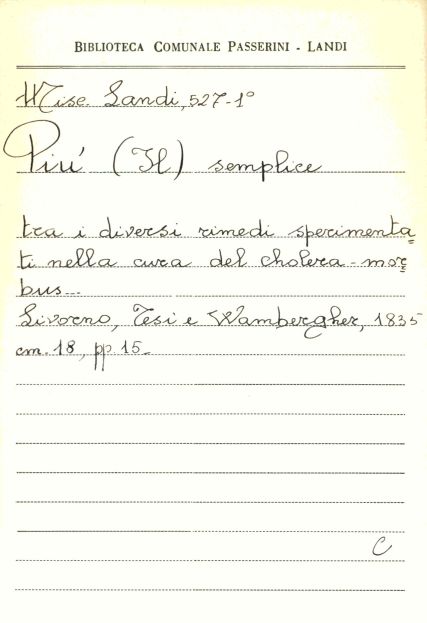 BIBLIOTECA COMUNALE PASSERINI - LANDI
Misc. Landi, 527-1°
Piú (Il) semplice
tra i diversi rimedi sperimenta=
ti nella cura del cholera-mor=
bus...
Livorno, Tesi e Wambergher, 1835
cm. 18, pp. 15.-
C